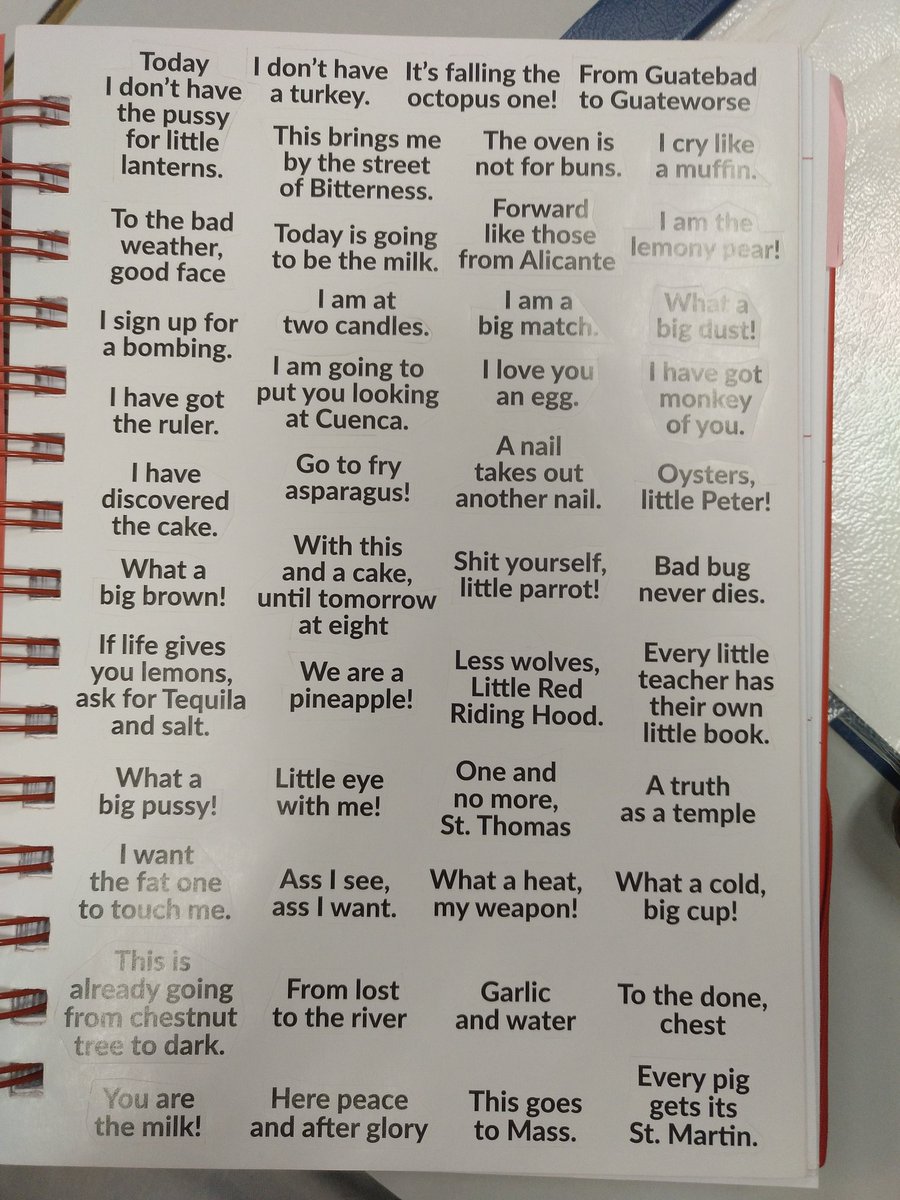 Today
I don't have
the pussy
for little
lanterns.
I don't have
a turkey.
It's falling the
octopus one!
From Guatebad
to Guateworse
This brings me
by the street
of Bitterness.
The oven is
not for buns.
I cry like
a muffin.
To the bad
weather,
good face
Today is going
to be the milk.
Forward
like those
from Alicante
I am the
lemony pear!
I sign up for
a bombing.
I am at
two candles.
I am a
big match.
What a
big dust!
I have got
the ruler.
I am going to
put you looking
at Cuenca.
I love you
an egg.
I have got
monkey
of you.
I have
discovered
the cake.
Go to fry
asparagus!
A nail
takes out
another nail.
Oysters,
little Peter!
What a
big brown!
With this
and a cake,
until tomorrow
at eight
Shit yourself,
little parrot!
Bad bug
never dies.
If life gives
you lemons,
ask for Tequila
and salt.
We are a
pineapple!
Less wolves,
Little Red
Riding Hood.
Every little
teacher has
their own
little book.
What a
big pussy!
Little eye
with me!
One and
no more,
St. Thomas
A truth
as a temple
I want
the fat one
to touch me.
Ass I see,
ass I want.
What a heat,
my weapon!
What a cold,
big cup!
This is
already going
from chestnut
tree to dark.
From lost
to the river
Garlic
and water
To the done,
chest
You are
the milk!
Here peace
and after glory
This goes
to Mass.
Every pig
gets its
St. Martin.